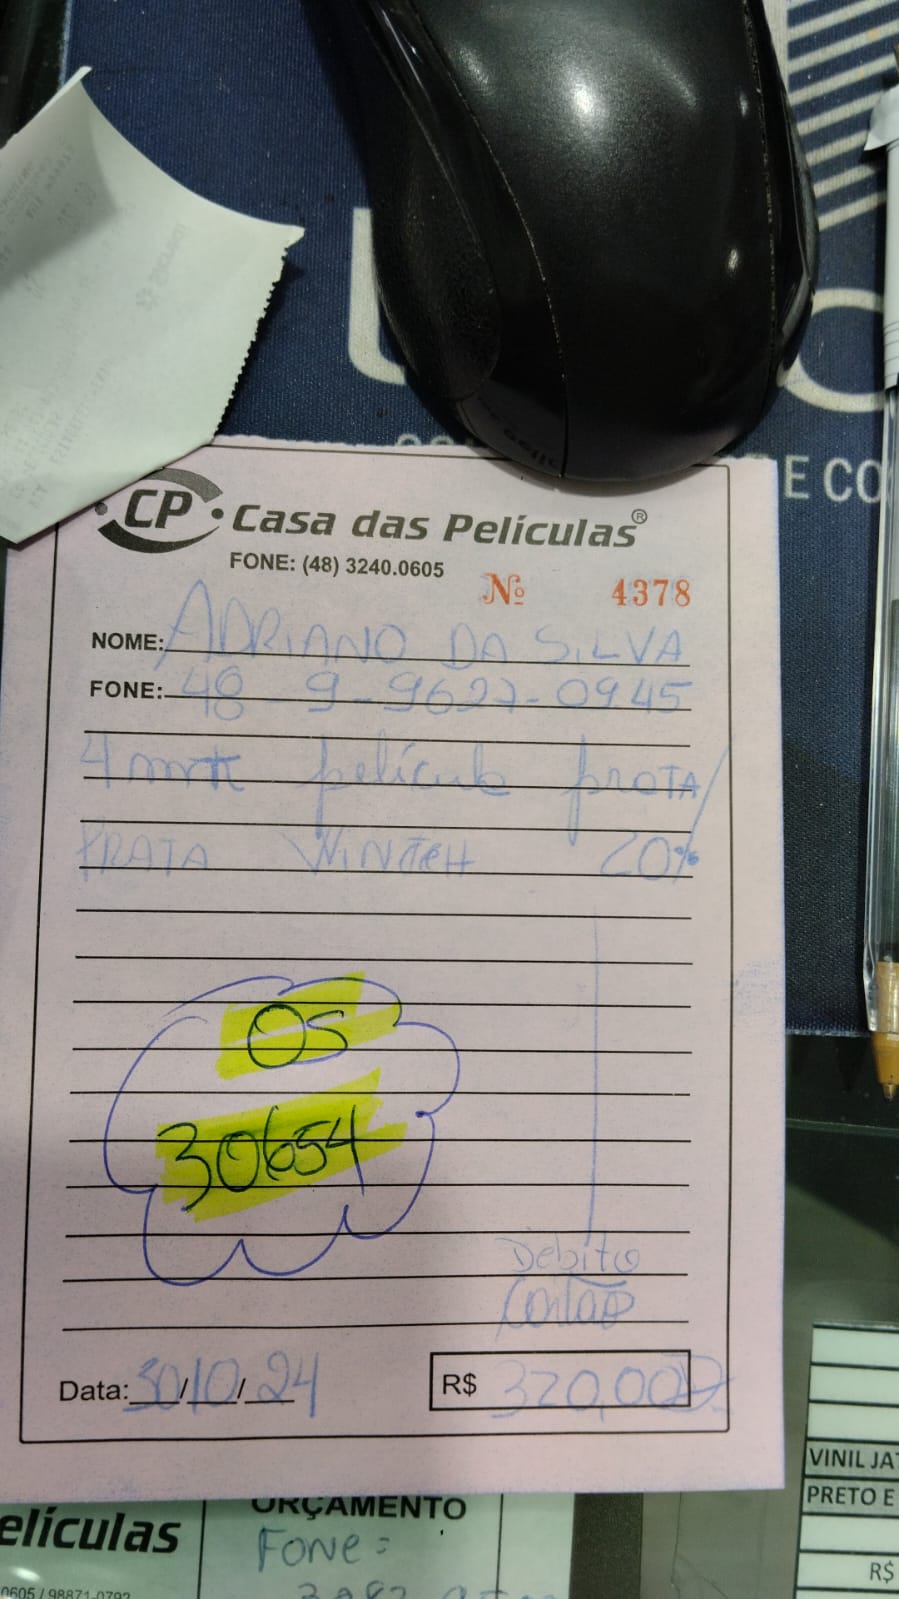 CP Casa das Películas®
FONE: (48) 3240.0605
Nº 4378
NOME: ADRIANO DA SILVA
FONE: 48-9-9627-0945
película prata/
PRATA 20%
OS
30654
Debito
Cartão
Data: 30/10/24
R$ 320,00
E CO
elículas
0605 / 98871-0792
ORÇAMENTO
Fone:
VINIL JA
PRETO E
R$